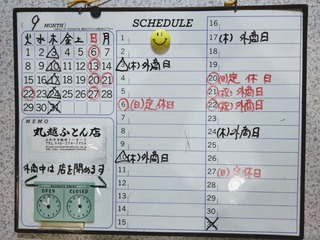 9 MONTH
火 水 木 金 土 日 月
1 2 3 4 5 6 7
8 9 10 11 12 13 14
15 16 17 18 19 20 21
22 23 24 25 26 27 28
29 30 31
MEMO
丸越ふとん店
外商中は店を閉めます
BUSINESS HOURS
OPEN CLOSED
SCHEDULE
1
2
3 (木)外商日
4
5
6 (日)定休日
7
8
9
10 (木)外商日
11
12
13
14
15
16
17 (木)外商日
18
19
20 (日)定休日
21 (祝)外商日
22 (祝)外商日
23
24 (木)外商日
25
26
27 (日)定休日
28
29
30
31